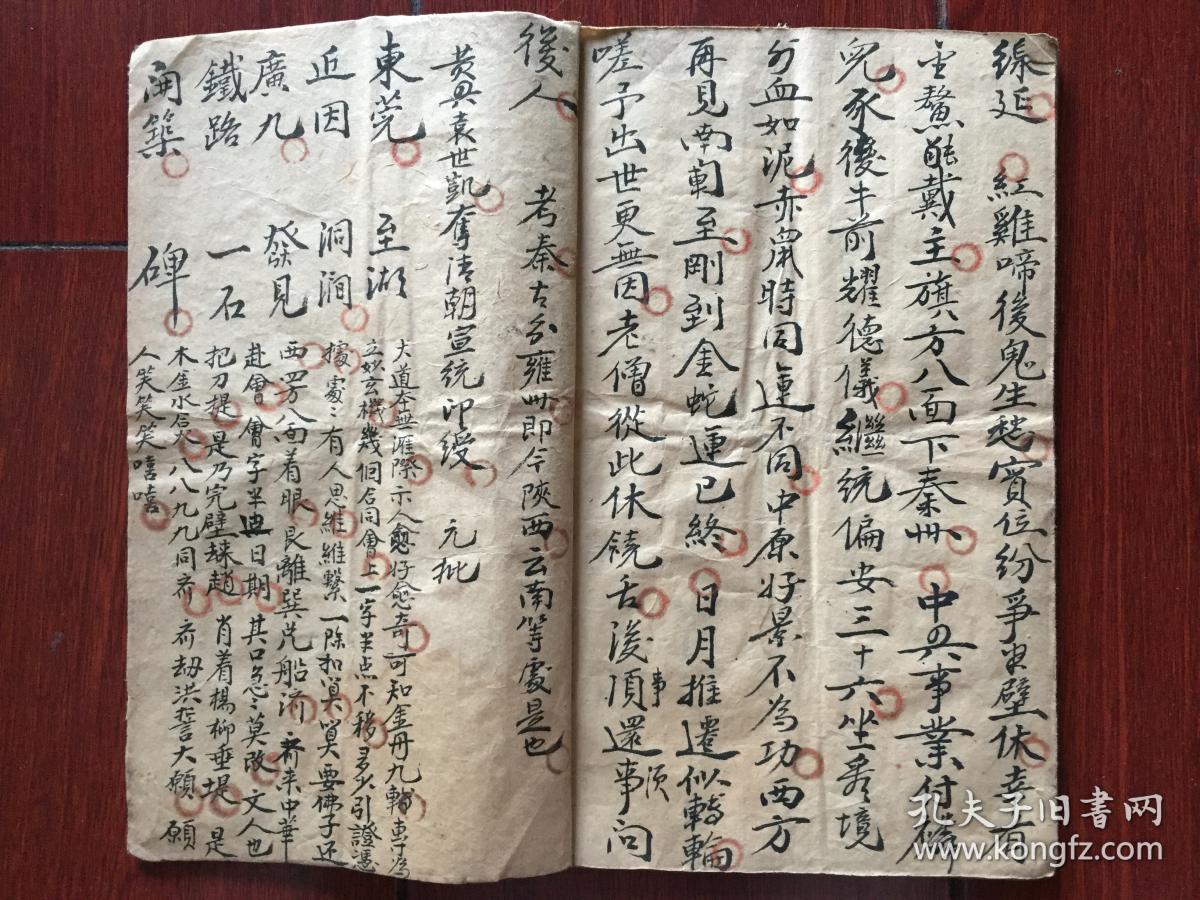 緜延 紅雞啼後鬼生愁寳位纷爭半壁休幸有
金鰲能戴主旗分八面下秦州 中興事業付麟
兒豕後牛前耀德儀繼統偏安三十六坐看境
外血如泥赤鼠時同運不同中原好景不為功西方
再見南軍至剛到金蛇運已終 日月推遷似轉輪
嗟予出世更無因老僧從此休饒舌後事須還事問
後人 考秦古分雍州即今陝西云南等處是也
黄興袁世凱奪清朝宣統印綬 元批
東莞 至湖
近因 洞澗
廣九 發見
鐵路 一石
開築 碑
大道本無涯際示人愈好愈奇可知金丹九轉專為
立妙玄機幾個合同會上一字半点不移多少引證憑
據處々有人思維維繫一除扣算算要佛子还
西四方八面着眼艮離巽芃船济 齐来中華
赴會會字半典日期 其口怱々莫改 文人也
把刀提是乃完壁䢖趙 肖着楊柳垂堤 是
木金水合火八八九九同齐 齐劫洪誓大願 願
人笑笑笑嘻嘻
孔夫子旧書网
www.kongfz.com